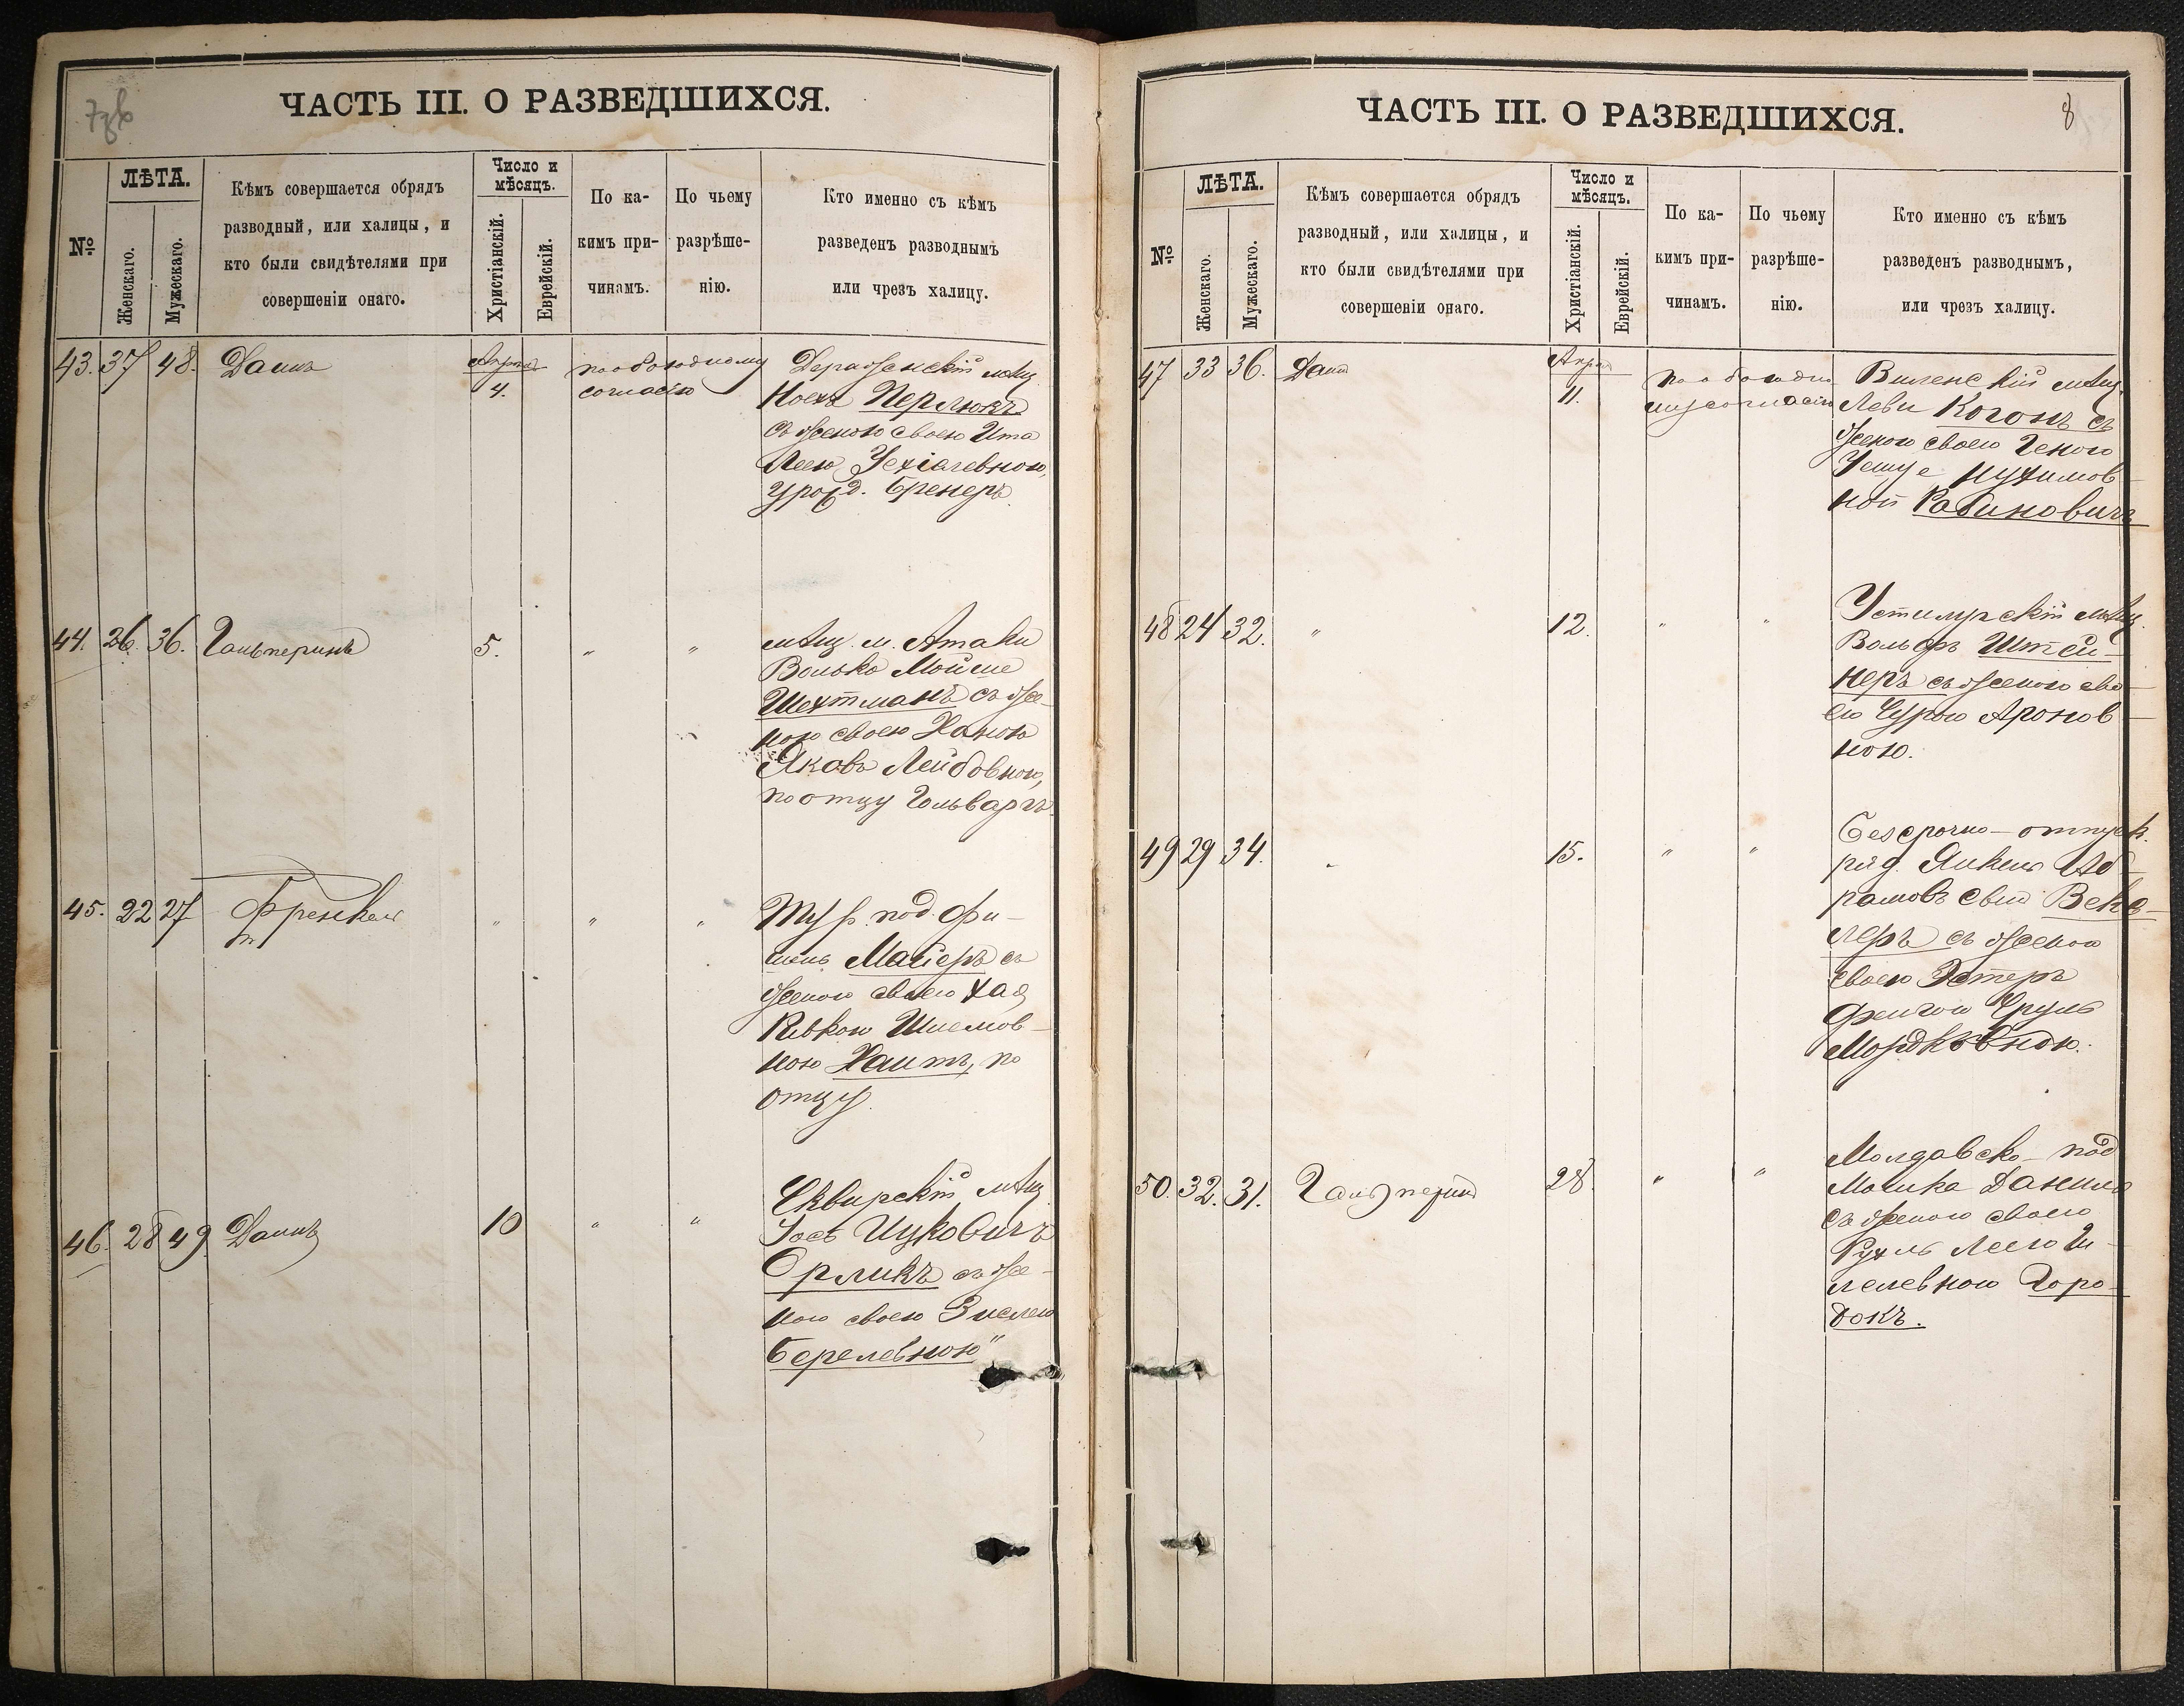 ЧАСТЬ III. О РАЗВЕДШИХСЯ.
№
ЛѢТА.
Женскаго.
Мужескаго.
Кѣмъ совершается обрядъ
разводный, или халицы, и
кто были свидѣтелями при
совершеніи онаго.
Число и
мѣсяцъ.
Христіанскій.
Еврейскій.
По ка-
кимъ при-
чинамъ.
По чьему
разрѣше-
нію.
Кто именно съ кѣмъ
разведенъ разводнымъ
или чрезъ халицу.
43. 37 48.
Апрѣль
4.
по обоюдному
согласію
Дераженскій мѣщ.
Ноехъ Перлюкъ
съ женою своею Ита
Леею Уехіелевною,
урожд. Бренеръ.
44. 26. 36. Гальперинъ
5.
" "
мѣщ. м. Атаки
Волько Мойше
Шехтманъ съ же-
ною своею Ханою
Яковъ Лейбовною,
по отцу Гольваргъ.
45. 22 27 Френкель
" " "
Тур. под. Фи-
шель Майеръ съ
женою своею Хая
Ривкою Шлемов-
ною Хаитъ, по
отцу.
46. 28 49
10
" "
Сквирскій мѣщ.
Іосъ Ицковичъ
Орликъ съ же-
ною своею Зислею
Берелевною"
ЧАСТЬ III. О РАЗВЕДШИХСЯ.
8
№
ЛѢТА.
Женскаго.
Мужескаго.
Кѣмъ совершается обрядъ
разводный, или халицы, и
кто были свидѣтелями при
совершеніи онаго.
Число и
мѣсяцъ.
Христіанскій.
Еврейскій.
По ка-
кимъ при-
чинамъ.
По чьему
разрѣше-
нію.
Кто именно съ кѣмъ
разведенъ разводнымъ,
или чрезъ халицу.
47 33 36.
Апрѣль
11.
по обоюдно
му согласію
Виленскій мѣщ.
Леви Когонъ съ
женою своею Геною
Нухимов-
ной Рабиновичъ
48 24 32. "
12.
" "
Устилугскій мѣщ.
Вольфъ Штей-
неръ съ женою сво-
ею Сурою Аронов-
ною.
49 29 34. "
15.
" "
Безсрочно-отпуск.
ряд. Янкель Аб-
рамовъ Векс-
леръ съ женою
своею Эстеръ
Фейгою Сруль
Мордковною.
50. 32. 31. Гальперинъ
28
" "
Молдавско-под
Мошка Данила
съ женою своею
Рухль Леею И-
лелевною Горо-
докъ.